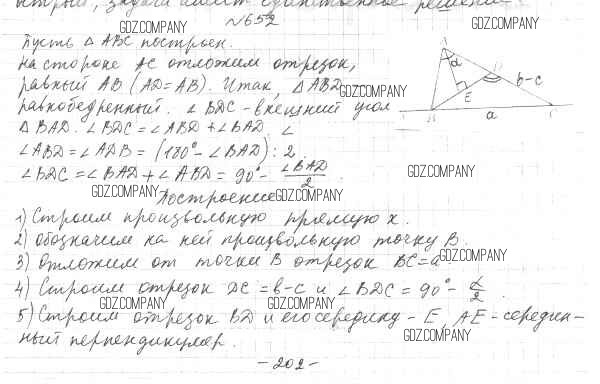 острый, задача имеет единственное решение
№652
Пусть △ ABC построен.
На стороне AC отложим отрезок,
равный AB (AD=AB). Итак, △ABD
равнобедренный. ∠BDC - внешний угол
△ BAD. ∠BDC = ∠ABD + ∠BAD. ∠
∠ABD = ∠ADB = (180° - ∠BAD) : 2
∠BDC = ∠BAD + ∠ABD = 90° - ∠BAD/2.
Построение
1) Строим произвольную прямую x.
2) Обозначим на ней произвольную точку B.
3) Отложим от точки B отрезок BC=a
4) Строим отрезок DC = b-c и ∠BDC = 90° - α/2.
5) Строим отрезок BD и его середину - E, AE - середин-
ный перпендикуляр.
- 202 -
α
b-c
E
a
GDZ.COMPANY
GDZ.COMPANY
GDZ.COMPANY
GDZ.COMPANY
GDZ.COMPANY
GDZ.COMPANY
GDZ.COMPANY
GDZ.COMPANY
GDZ.COMPANY
GDZ.COMPANY
GDZ.COMPANY